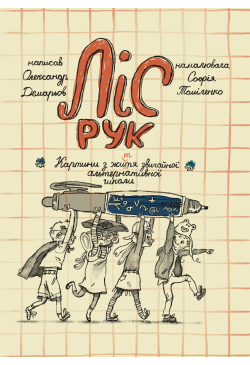 написав
Олександр
Дємарьов
намалювала
Софія
Томіленко
ЛіС
РУК
Картини з життя звичайної
альтернативної
школи